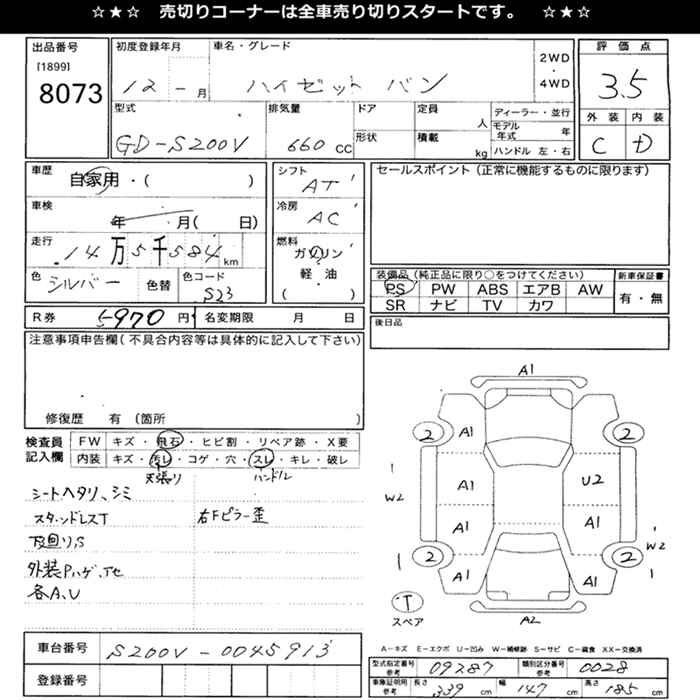 ☆★☆ 売切りコーナーは全車売り切りスタートです。 ☆★☆
出品番号
[1899]
8073
初度登録年月
12 - 月
車名・グレード
ハイゼット バン
2WD
・
4WD
評価点
3.5
外装 内装
C D
型式
GD-S200V
排気量
660 cc
ドア
形状
定員
人
積載
kg
ディーラー・並行
モデル年式 年
ハンドル 左・右
車歴
自家用・( )
車検
年 月( 日)
走行
14万5千584 km
色
シルバー
色替
色コード
S23
シフト
AT
冷房
AC
燃料
ガソリン
・
軽油
( )
セールスポイント(正常に機能するものに限ります)
装備品(純正品に限り○をつけてください)
PS PW ABS エアB AW
SR ナビ TV カワ
新車保証書
有・無
R券 5970 円 名変期限 月 日
後日品
注意事項申告欄(不具合内容等は具体的に記入して下さい)
修復歴 有 (箇所 )
検査員
記入欄
FW キズ・飛石・ヒビ割・リペア跡・X要
内装 キズ・汚レ・コゲ・穴・スレ・キレ・破レ
天張り ハンドル
シートヘタリ、シミ
スタッドレスT
右Fピラー歪
下廻りS
外装Pハゲ、
各A、U
A1
2 A1 2
W2 A1 U2
A1 A1 W2
2 A1 A1 2
T
スペア
A2
A-キズ E-エクボ U-凹み W-補修跡 S-サビ C-腐食 XX-交換済
車台番号 S200V-0045913
登録番号
型式指定番号 参考 09287 類別区分番号 参考 0028
車庫証明用 参考 長さ 339 cm 幅 147 cm 高さ 185 cm